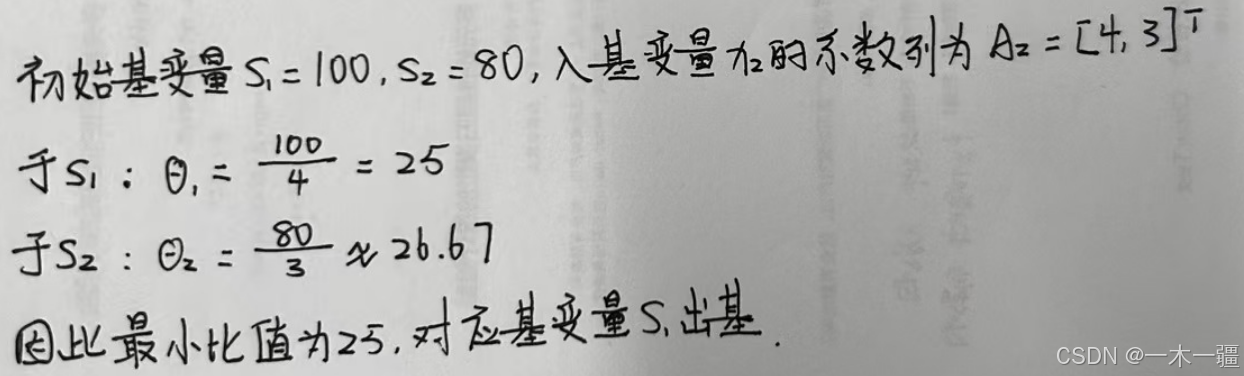 初始基变量 S₁ = 100, S₂ = 80, 入基变量 x₂的系数列为 A₂ = [4, 3]ᵀ
于S₁ : Θ₁ = 100/4 = 25
于S₂ : Θ₂ = 80/3 ≈ 26.67
因此最小比值为25, 对应基变量S₁出基.
CSDN @一木一疆